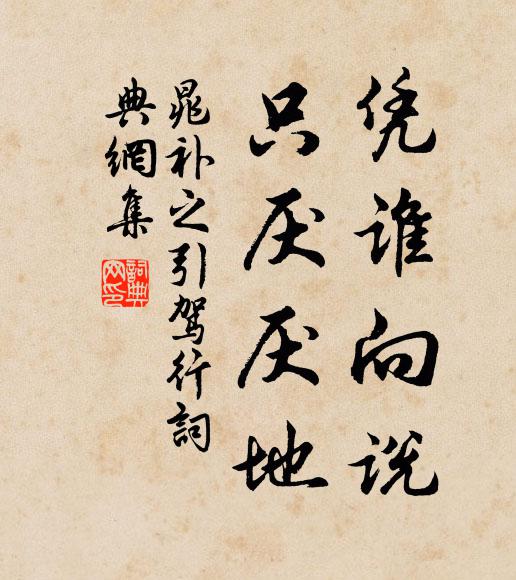 凭谁向说
只厌厌地
晁补之引驾行詞
典網集
詞典网印